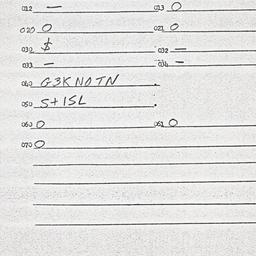 012 — 013 0
020 0 021 0
030 $ 032 —
033 — 034 —
040 G3KNOTN .
050 S+ISL .
060 0 061 0
070 0